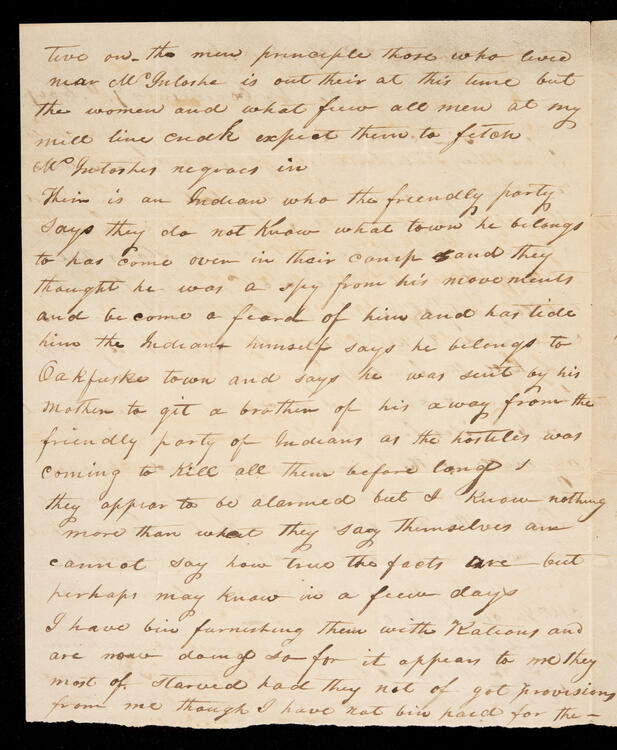 tive on the men principle those who lived
near McIntoshe is out their at this time but
the women and what fiew all men at my
mill line expect them to fetch
McIntoshes negroes in
Their is an Indian who the friendly party
says they do not Know what town he belongs
to has come over in their camp and they
thought he was a spy from his movements
and become a feard of him and has tide
him the Indian himself says he belongs to
Oakfuske town and says he was sent by his
Mother to git a brother of his away from the
friendly party of Indians as the hostiles was
coming to Kill all them before long &
they appear to be alarmed but I Know nothing
more than what they say themselves an
cannot say how true the facts are but
perhaps may Know in a fiew days
I have bin furnishing them with Rations and
are now doing so for it appears to me they
most of starved had they not of got provisions
from me though I have not bin paid for the-